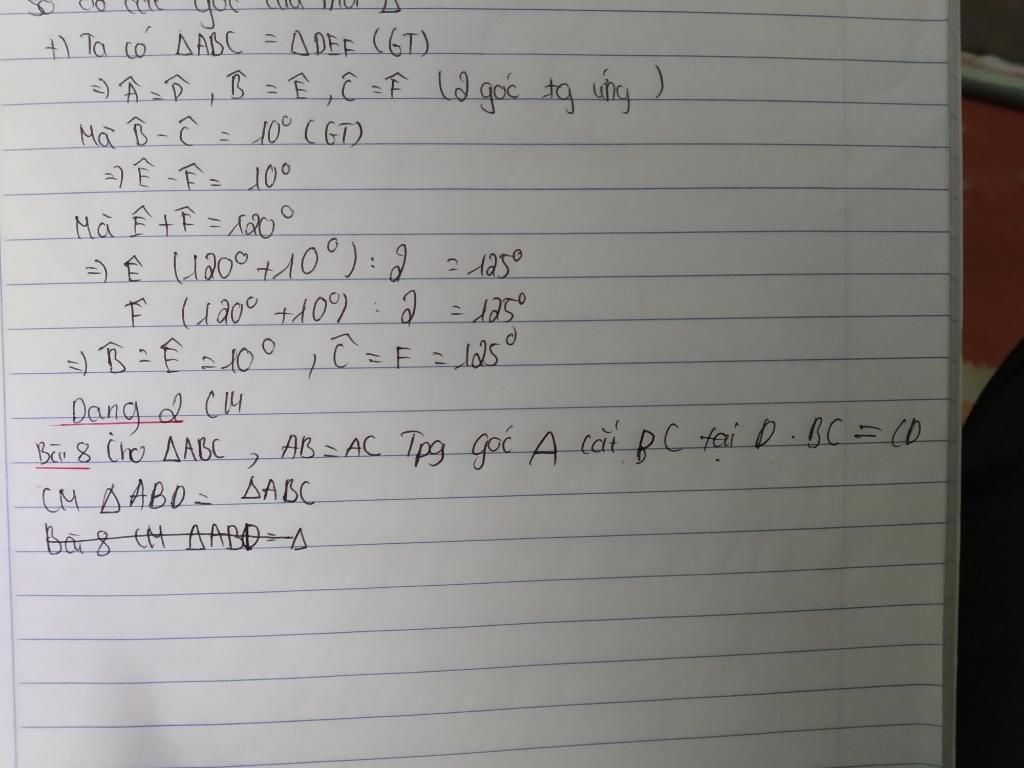 số đo các góc của mỗi Δ
+) Ta có ΔABC = ΔDEF (GT)
=> Â = D̂, B̂ = Ê, Ĉ = F̂ (2 góc tg ứng)
Mà B̂ - Ĉ = 10° (GT)
=> Ê - F̂ = 10°
Mà Ê + F̂ = 120°
=> Ê (120° + 10°) : 2 = 125°
F̂ (120° + 10°) : 2 = 125°
=> B̂ = Ê = 10°, Ĉ = F = 125°
Dạng 2 CM
Bài 8 Cho ΔABC, AB = AC Tpg góc A cắt BC tại D. BC = CD
CM ΔABD = ΔABC
Bài 8 CM ΔABD = Δ